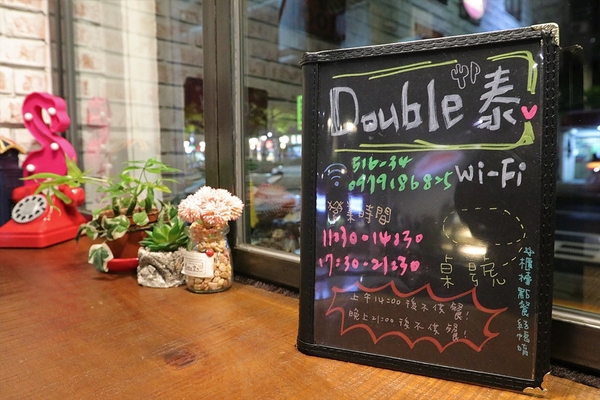 Double泰
516-34
0979186825
Wi-Fi
營業時間
11:30-14:30
17:30-21:30
桌號
上午14:00後不供餐!
晚上21:00後不供餐!
櫃檯點餐結帳唷